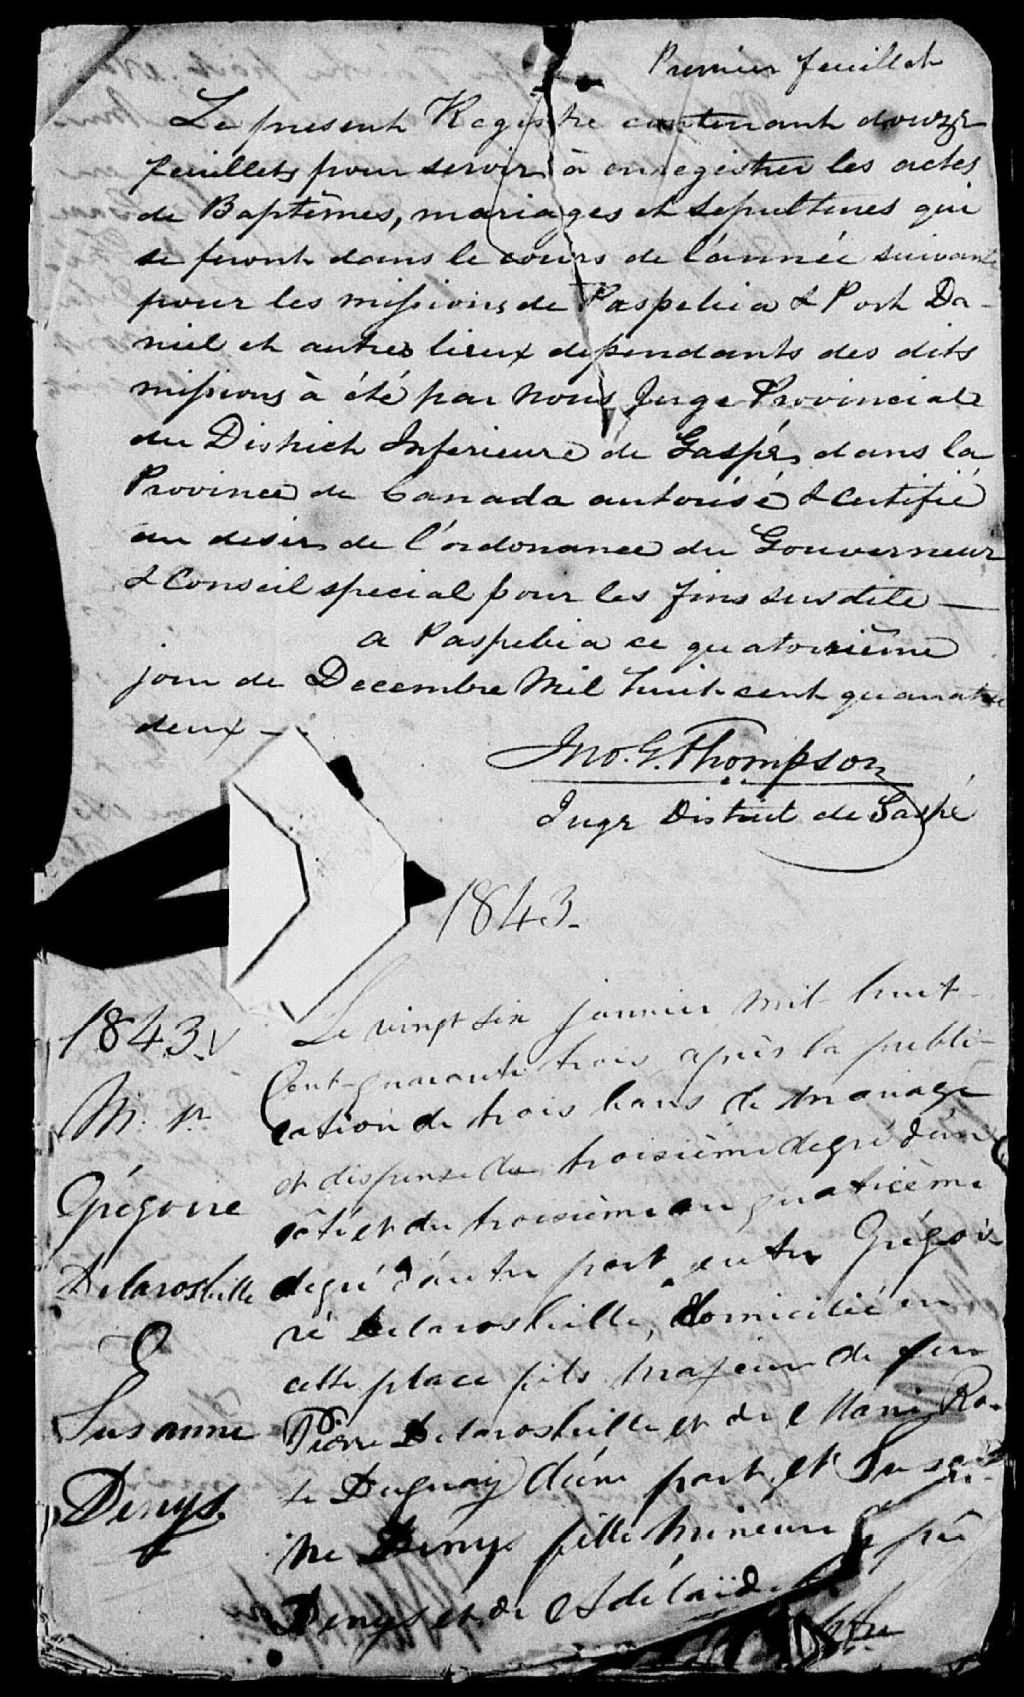 Premier feuillet
Le present Registre contenant douze
feuillets pour servir à enregistrer les actes
de Baptêmes, mariages et sépultures qui
se feront dans le cours de l'année suivante
pour les missions de Paspebia & Port Da-
niel et autres lieux dependants des dits
missions à été par nous Juge Provincial
du District Inferieure de Gaspé, dans la
Province de Canada autorisé & certifié
au desir de l'ordonance du Gouverneur
& Conseil special pour les fins susdite —
a Paspebia ce quatorzième
jour de Decembre Mil huit cent quarante
deux —
Jno. G. Thompson
Juge District de Gaspé
1843.
1843.
M. 1r
Grégoire
Delarosbille
&
Susanne
Denys.
Le vingt six janvier mil huit-
Cent-quarante trois après la publi-
cation de trois bans de mariage
et dispense du troisième degré d'un
côté et du troisième au quatrième
degré d'autre part entre Grégoi-
re Delarosbille, domicilié en
cette place fils majeur de feu
Pierre Delarosbille et de Marie Ro-
se Duguay d'une part, et Susan-
ne Denys fille mineure
Denys et de Adélaïde